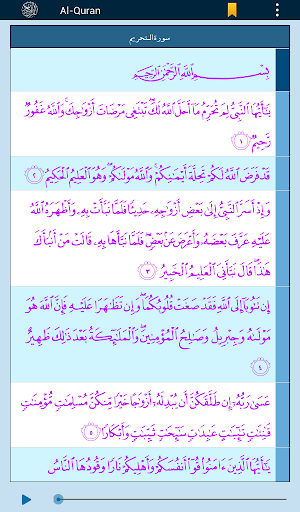 Al-Quran
سورة التحريم
بِسْمِ اللَّهِ الرَّحْمَٰنِ الرَّحِيمِ
يَٰٓأَيُّهَا ٱلنَّبِىُّ لِمَ تُحَرِّمُ مَآ أَحَلَّ ٱللَّهُ لَكَ ۖ تَبْتَغِى مَرْضَاتَ أَزْوَٰجِكَ ۚ وَٱللَّهُ غَفُورٌ
رَّحِيمٌ ١
قَدْ فَرَضَ ٱللَّهُ لَكُمْ تَحِلَّةَ أَيْمَٰنِكُمْ ۚ وَٱللَّهُ مَوْلَىٰكُمْ ۖ وَهُوَ ٱلْعَلِيمُ ٱلْحَكِيمُ ٢
وَإِذْ أَسَرَّ ٱلنَّبِىُّ إِلَىٰ بَعْضِ أَزْوَٰجِهِۦ حَدِيثًا فَلَمَّا نَبَّأَتْ بِهِۦ وَأَظْهَرَهُ ٱللَّهُ
عَلَيْهِ عَرَّفَ بَعْضَهُۥ وَأَعْرَضَ عَنۢ بَعْضٍ ۖ فَلَمَّا نَبَّأَهَا بِهِۦ قَالَتْ مَنْ أَنۢبَأَكَ
هَٰذَا ۖ قَالَ نَبَّأَنِىَ ٱلْعَلِيمُ ٱلْخَبِيرُ ٣
إِن تَتُوبَآ إِلَى ٱللَّهِ فَقَدْ صَغَتْ قُلُوبُكُمَا ۖ وَإِن تَظَٰهَرَا عَلَيْهِ فَإِنَّ ٱللَّهَ هُوَ
مَوْلَىٰهُ وَجِبْرِيلُ وَصَٰلِحُ ٱلْمُؤْمِنِينَ ۖ وَٱلْمَلَٰٓئِكَةُ بَعْدَ ذَٰلِكَ ظَهِيرٌ
٤
عَسَىٰ رَبُّهُۥٓ إِن طَلَّقَكُنَّ أَن يُبْدِلَهُۥٓ أَزْوَٰجًا خَيْرًا مِّنكُنَّ مُسْلِمَٰتٍ مُّؤْمِنَٰتٍ
قَٰنِتَٰتٍ تَٰٓئِبَٰتٍ عَٰبِدَٰتٍ سَٰٓئِحَٰتٍ ثَيِّبَٰتٍ وَأَبْكَارًا ٥
يَٰٓأَيُّهَا ٱلَّذِينَ ءَامَنُوا۟ قُوٓا۟ أَنفُسَكُمْ وَأَهْلِيكُمْ نَارًا وَقُودُهَا ٱلنَّاسُ